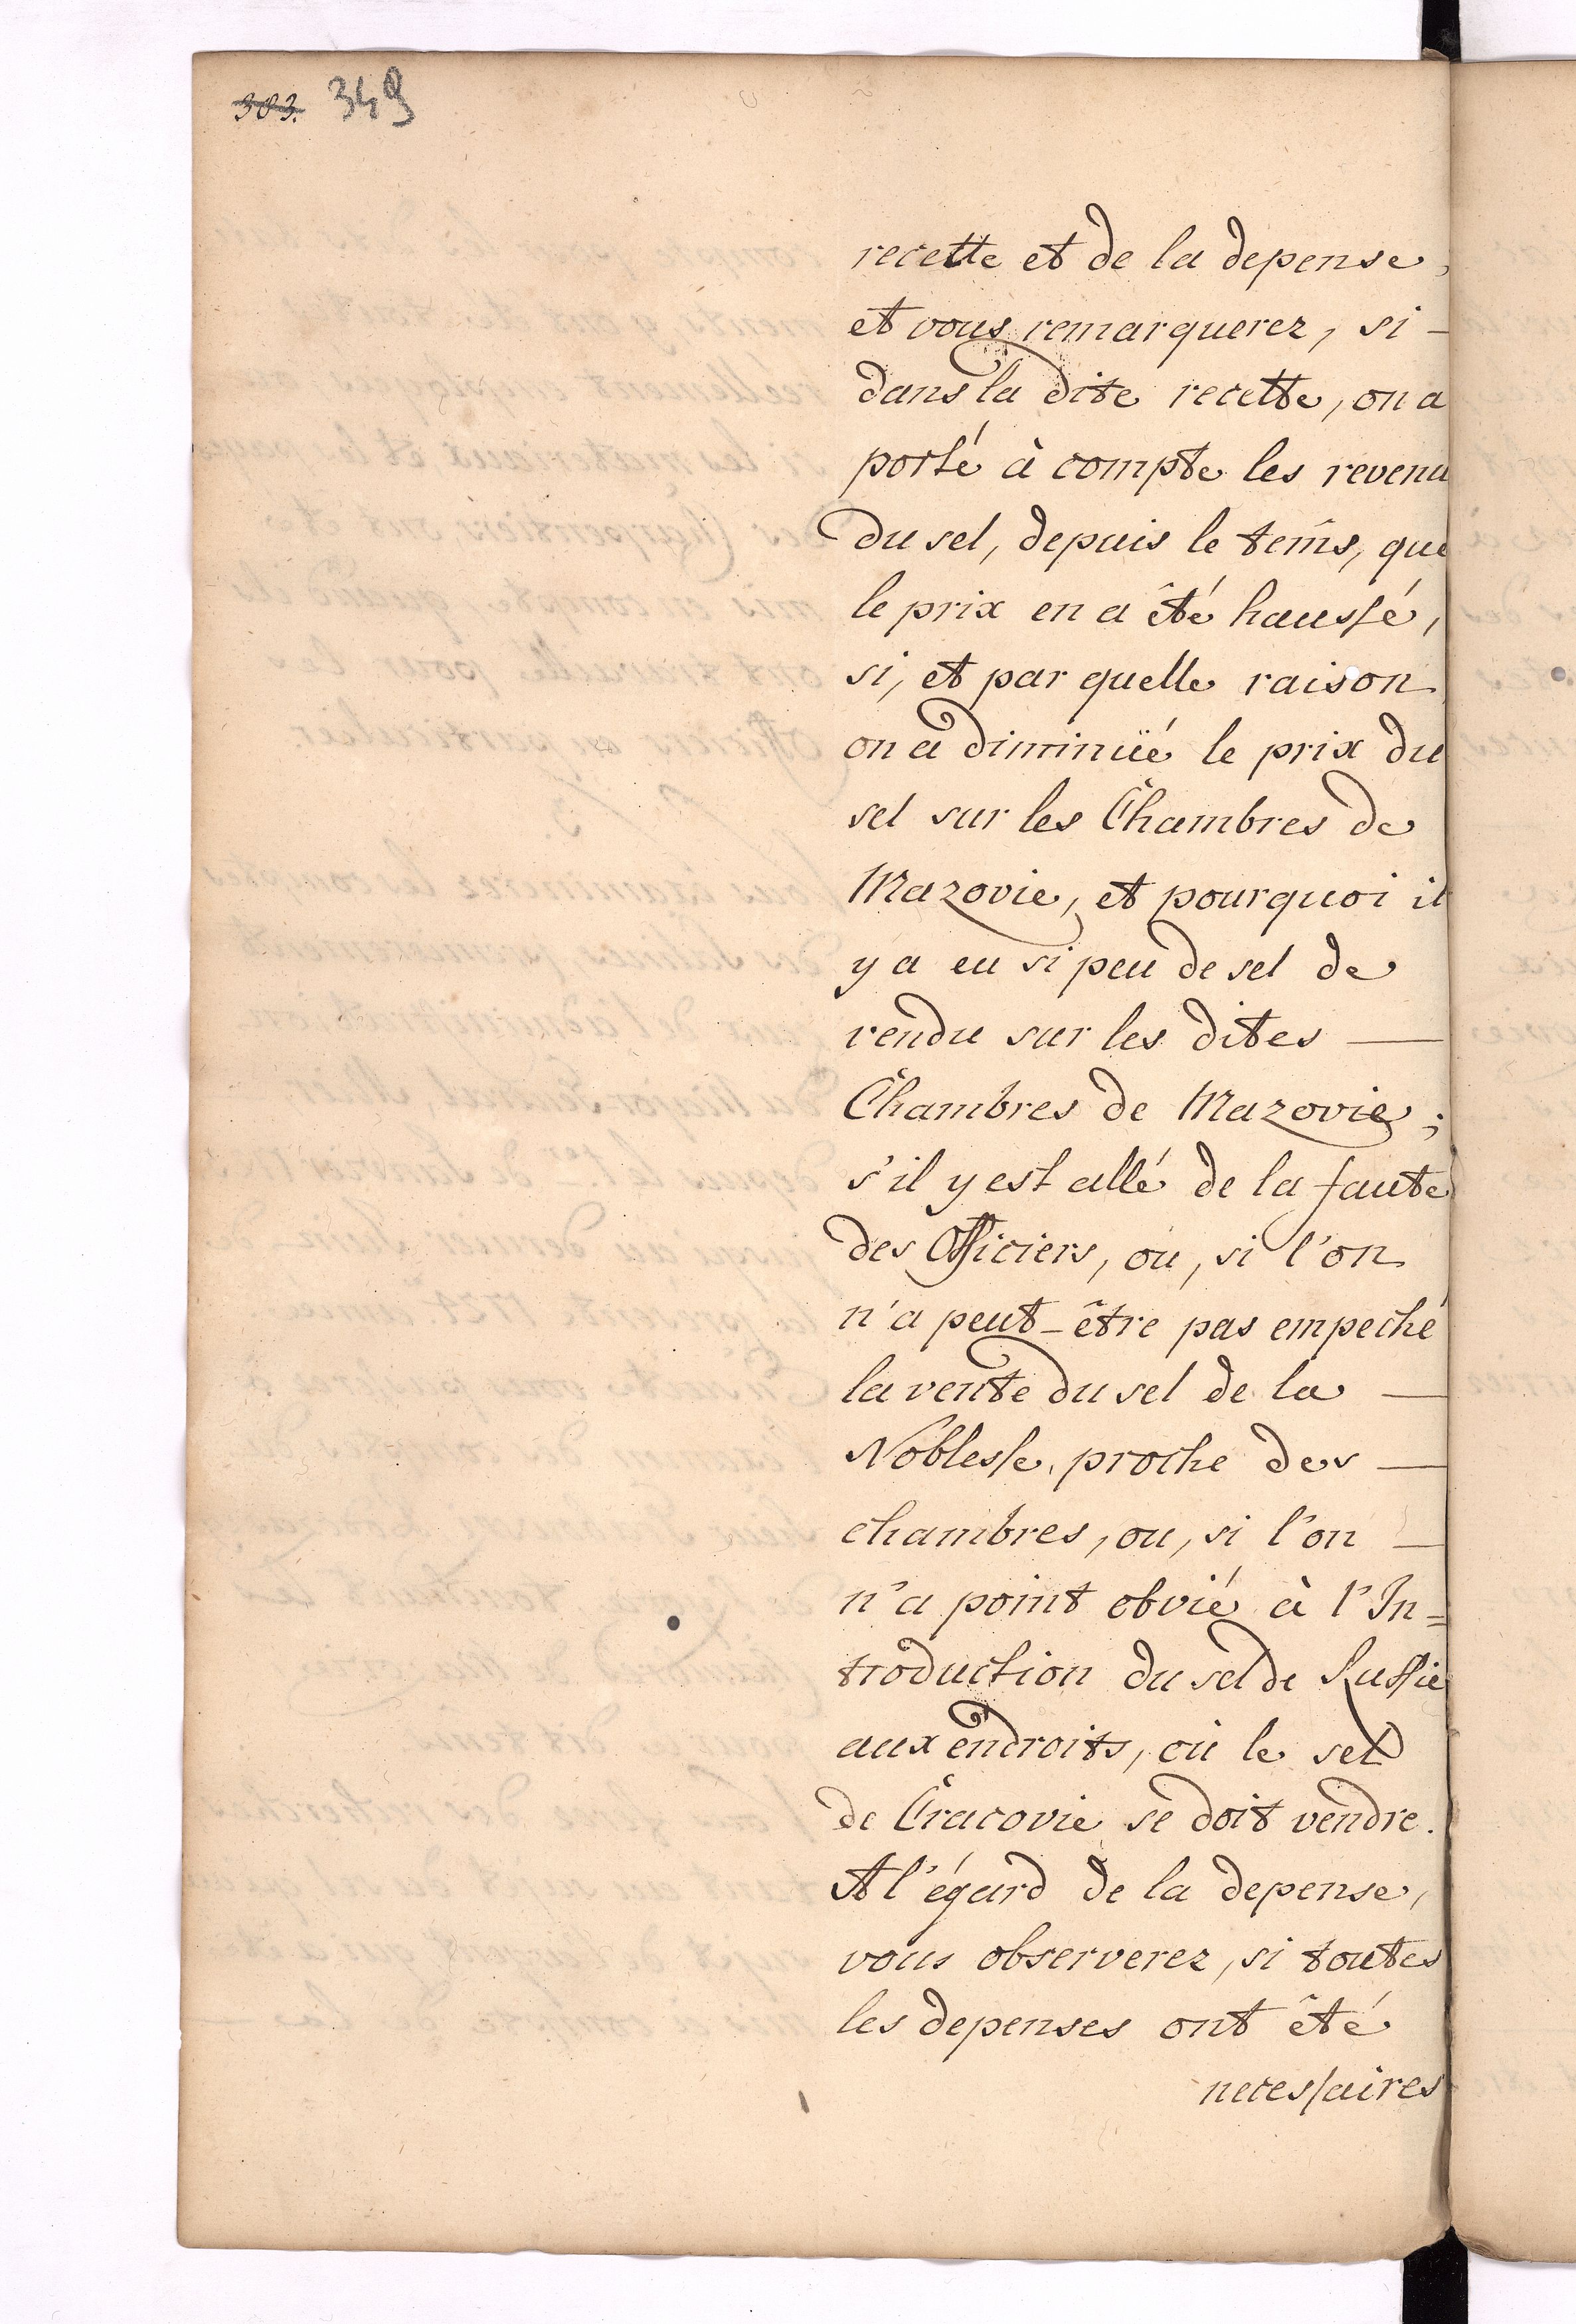 303. 349
recette et de la depense,
et vous remarquerez, si -
dans la dite recette, on a
porté à compte les revenu
du sel, depuis le tem̃s, que
le prix en a êté haussé,
si, et par quelle raison
on a diminüé le prix du
sel sur les Chambres de
Mazovie, et pourquoi il
y a eu si peu de sel de
vendu sur les dites —
Chambres de Mazovie;
s'il y est allé de la faute
des Officiers, ou, si l'on
n'a peut-être pas empeché
la vente du sel de la —
Noblesse, proche des —
chambres, ou, si l'on —
n'a point obvié à l'In=
troduction du sel de Russie
aux endroits, où le sel
de Cracovie se doit vendre.
A l'égard de la depense,
vous observerez, si toutes
les depenses ont êté
necessaires